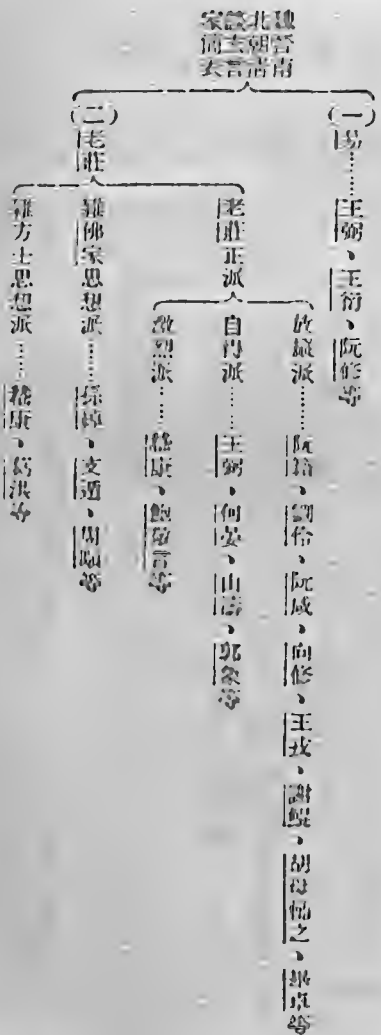 魏晉南
北朝清
談玄言
家簡表
(一)易……王弼、王衍、阮修等
(二)老莊
老莊正派
……阮籍、劉伶、阮咸、向修、王戎、謝鯤、胡母輔之、畢卓等
自得派……王弼、何晏、山濤、郭象等
激烈派……嵇康、鮑敬言等
雜佛家思想派……孫綽、支遁、周顒等
雜方士思想派……嵇康、葛洪等